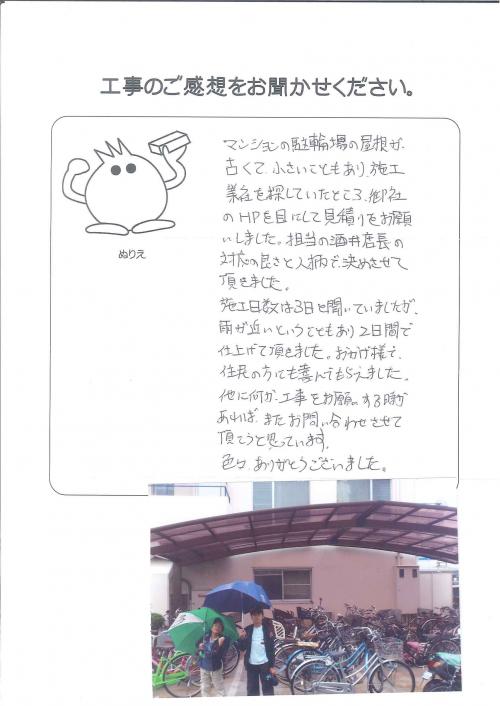 工事のご感想をお聞かせください。
ぬりえ
マンションの駐輪場の屋根が、
古くて、小さいこともあり、施工
業者を探していたところ、御社
のHPを目にして見積りをお願
いしました。担当の酒井店長の
対応の良さと人柄で、決めさせて
頂きました。
施工日数は3日と聞いていましたが、
雨が近いということもあり2日間で
仕上げて頂きました。おかげ様で、
住民の方にも喜んでもらえました。
他に何か、工事をお願いする時が
あれば、またお問い合わせさせて
頂こうと思っています。
色々、ありがとうございました。